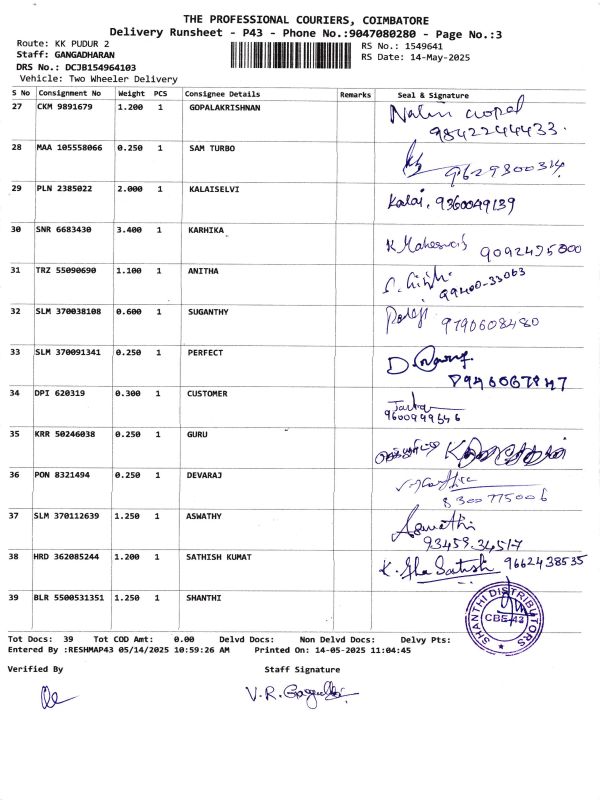 THE PROFESSIONAL COURIERS, COIMBATORE
Delivery Runsheet - P43 - Phone No.:9047080280 - Page No.:3
Route: KK PUDUR 2 RS No.: 1549641
Staff: GANGADHARAN RS Date: 14-May-2025
DRS No.: DCJB154964103
Vehicle: Two Wheeler Delivery
S No Consignment No Weight PCS Consignee Details Remarks Seal & Signature
27 CKM 9891679 1.200 1 GOPALAKRISHNAN Nalin Gopal
9842244433.
28 MAA 105558066 0.250 1 SAM TURBO 9629800314
29 PLN 2385022 2.000 1 KALAISELVI Kalai, 9360049139
30 SNR 6683430 3.400 1 KARHIKA K Maheswari 9092495000
31 TRZ 55090690 1.100 1 ANITHA
99400-33063
32 SLM 370038108 0.600 1 SUGANTHY 9790608480
33 SLM 370091341 0.250 1 PERFECT
34 DPI 620319 0.300 1 CUSTOMER
9600949646
35 KRR 50246038 0.250 1 GURU
36 PON 8321494 0.250 1 DEVARAJ
8300775006
37 SLM 370112639 1.250 1 ASWATHY Aswathi
93459.34517
38 HRD 362085244 1.200 1 SATHISH KUMAT 9662438535
39 BLR 5500531351 1.250 1 SHANTHI SHANTHI DISTRIBUTORS
CBE-43
Tot Docs: 39 Tot COD Amt: 0.00 Delvd Docs: Non Delvd Docs: Delvy Pts:
Entered By :RESHMAP43 05/14/2025 10:59:26 AM Printed On: 14-05-2025 11:04:45
Verified By Staff Signature